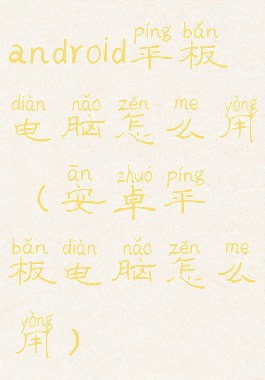 píng bǎn
android平板
diàn nǎo zěn me yòng
电脑怎么用
ān zhuó píng
(安卓平
bǎn diàn nǎo zěn me
板电脑怎么
yòng
用)